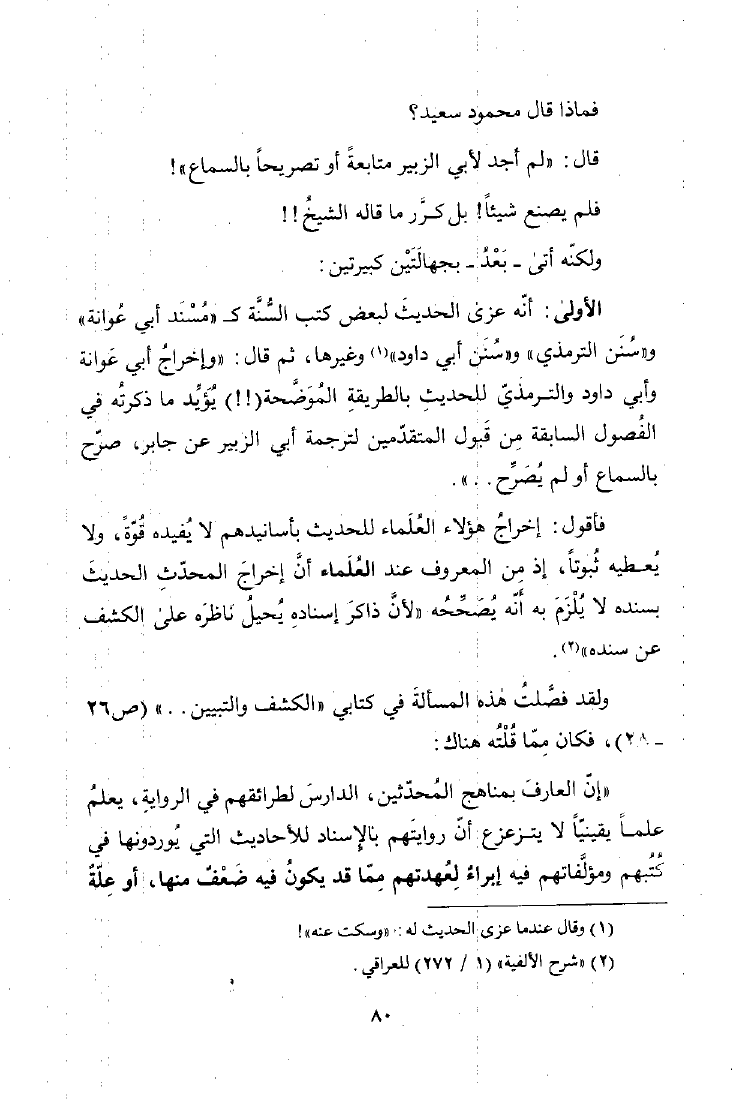 فماذا قال محمود سعيد؟
قال: «لم أجد لأبي الزبير متابعةً أو تصريحاً بالسماع»!
فلم يصنع شيئاً! بل كرَّر ما قاله الشيخُ!!
ولكنّه أتىٰ ـ بَعْدُ ـ بجهالَتَيْن كبيرتين:
الأولىٰ: أنّه عزىٰ الحديثَ لبعض كتب السُّنَّة كـ «مُسْنَد أبي عُوانة»
و«سُنَن الترمذي» و«سُنَن أبي داود»(١) وغيرها، ثم قال: «وإخراجُ أبي عَوانة
وأبي داود والترمذيّ للحديثِ بالطريقةِ المُوَضَّحة(!!) يُؤَيِّد ما ذكرتُه في
الفُصول السابقة مِن قَبول المتقدّمين لترجمة أبي الزبير عن جابر، صرّح
بالسماع أو لم يُصَرِّح. . .».
فأقول: إخراجُ هؤلاء العُلَماء للحديث بأسانيدهم لا يُفيده قُوّةً، ولا
يُعطيه ثُبوتاً، إذ مِن المعروف عند العُلَماء أنَّ إخراجَ المحدّثِ الحديثَ
بسنده لا يُلْزَمَ به أنّه يُصَحِّحُه «لأنَّ ذاكرَ إسناده يُحيلُ نَاظرَه علىٰ الكشف
عن سنده»(٢).
ولقد فصَّلتُ هٰذه المسألةَ في كتابي «الكشف والتبيين. . .» (ص٢٦
ـ ٢٨)، فكان مِمّا قُلْتُه هناك:
«إنّ العارفَ بمناهج المُحدّثين، الدارسَ لطرائقهم في الروايةِ، يعلمُ
علماً يقينيّاً لا يتزعزع أنّ روايتَهم بالإسناد للأحاديث التي يُوردونها في
كُتُبهم ومؤلَّفاتهم فيه إبراءٌ لِعُهدتهم مِمّا قد يكونُ فيه ضَعْفٌ منها، أو عِلّةٌ
(١) وقال عندما عزى الحديث له: «وسكت عنه»!
(٢) «شرح الألفية» (١ / ٢٧٢) للعراقي.
٨٠